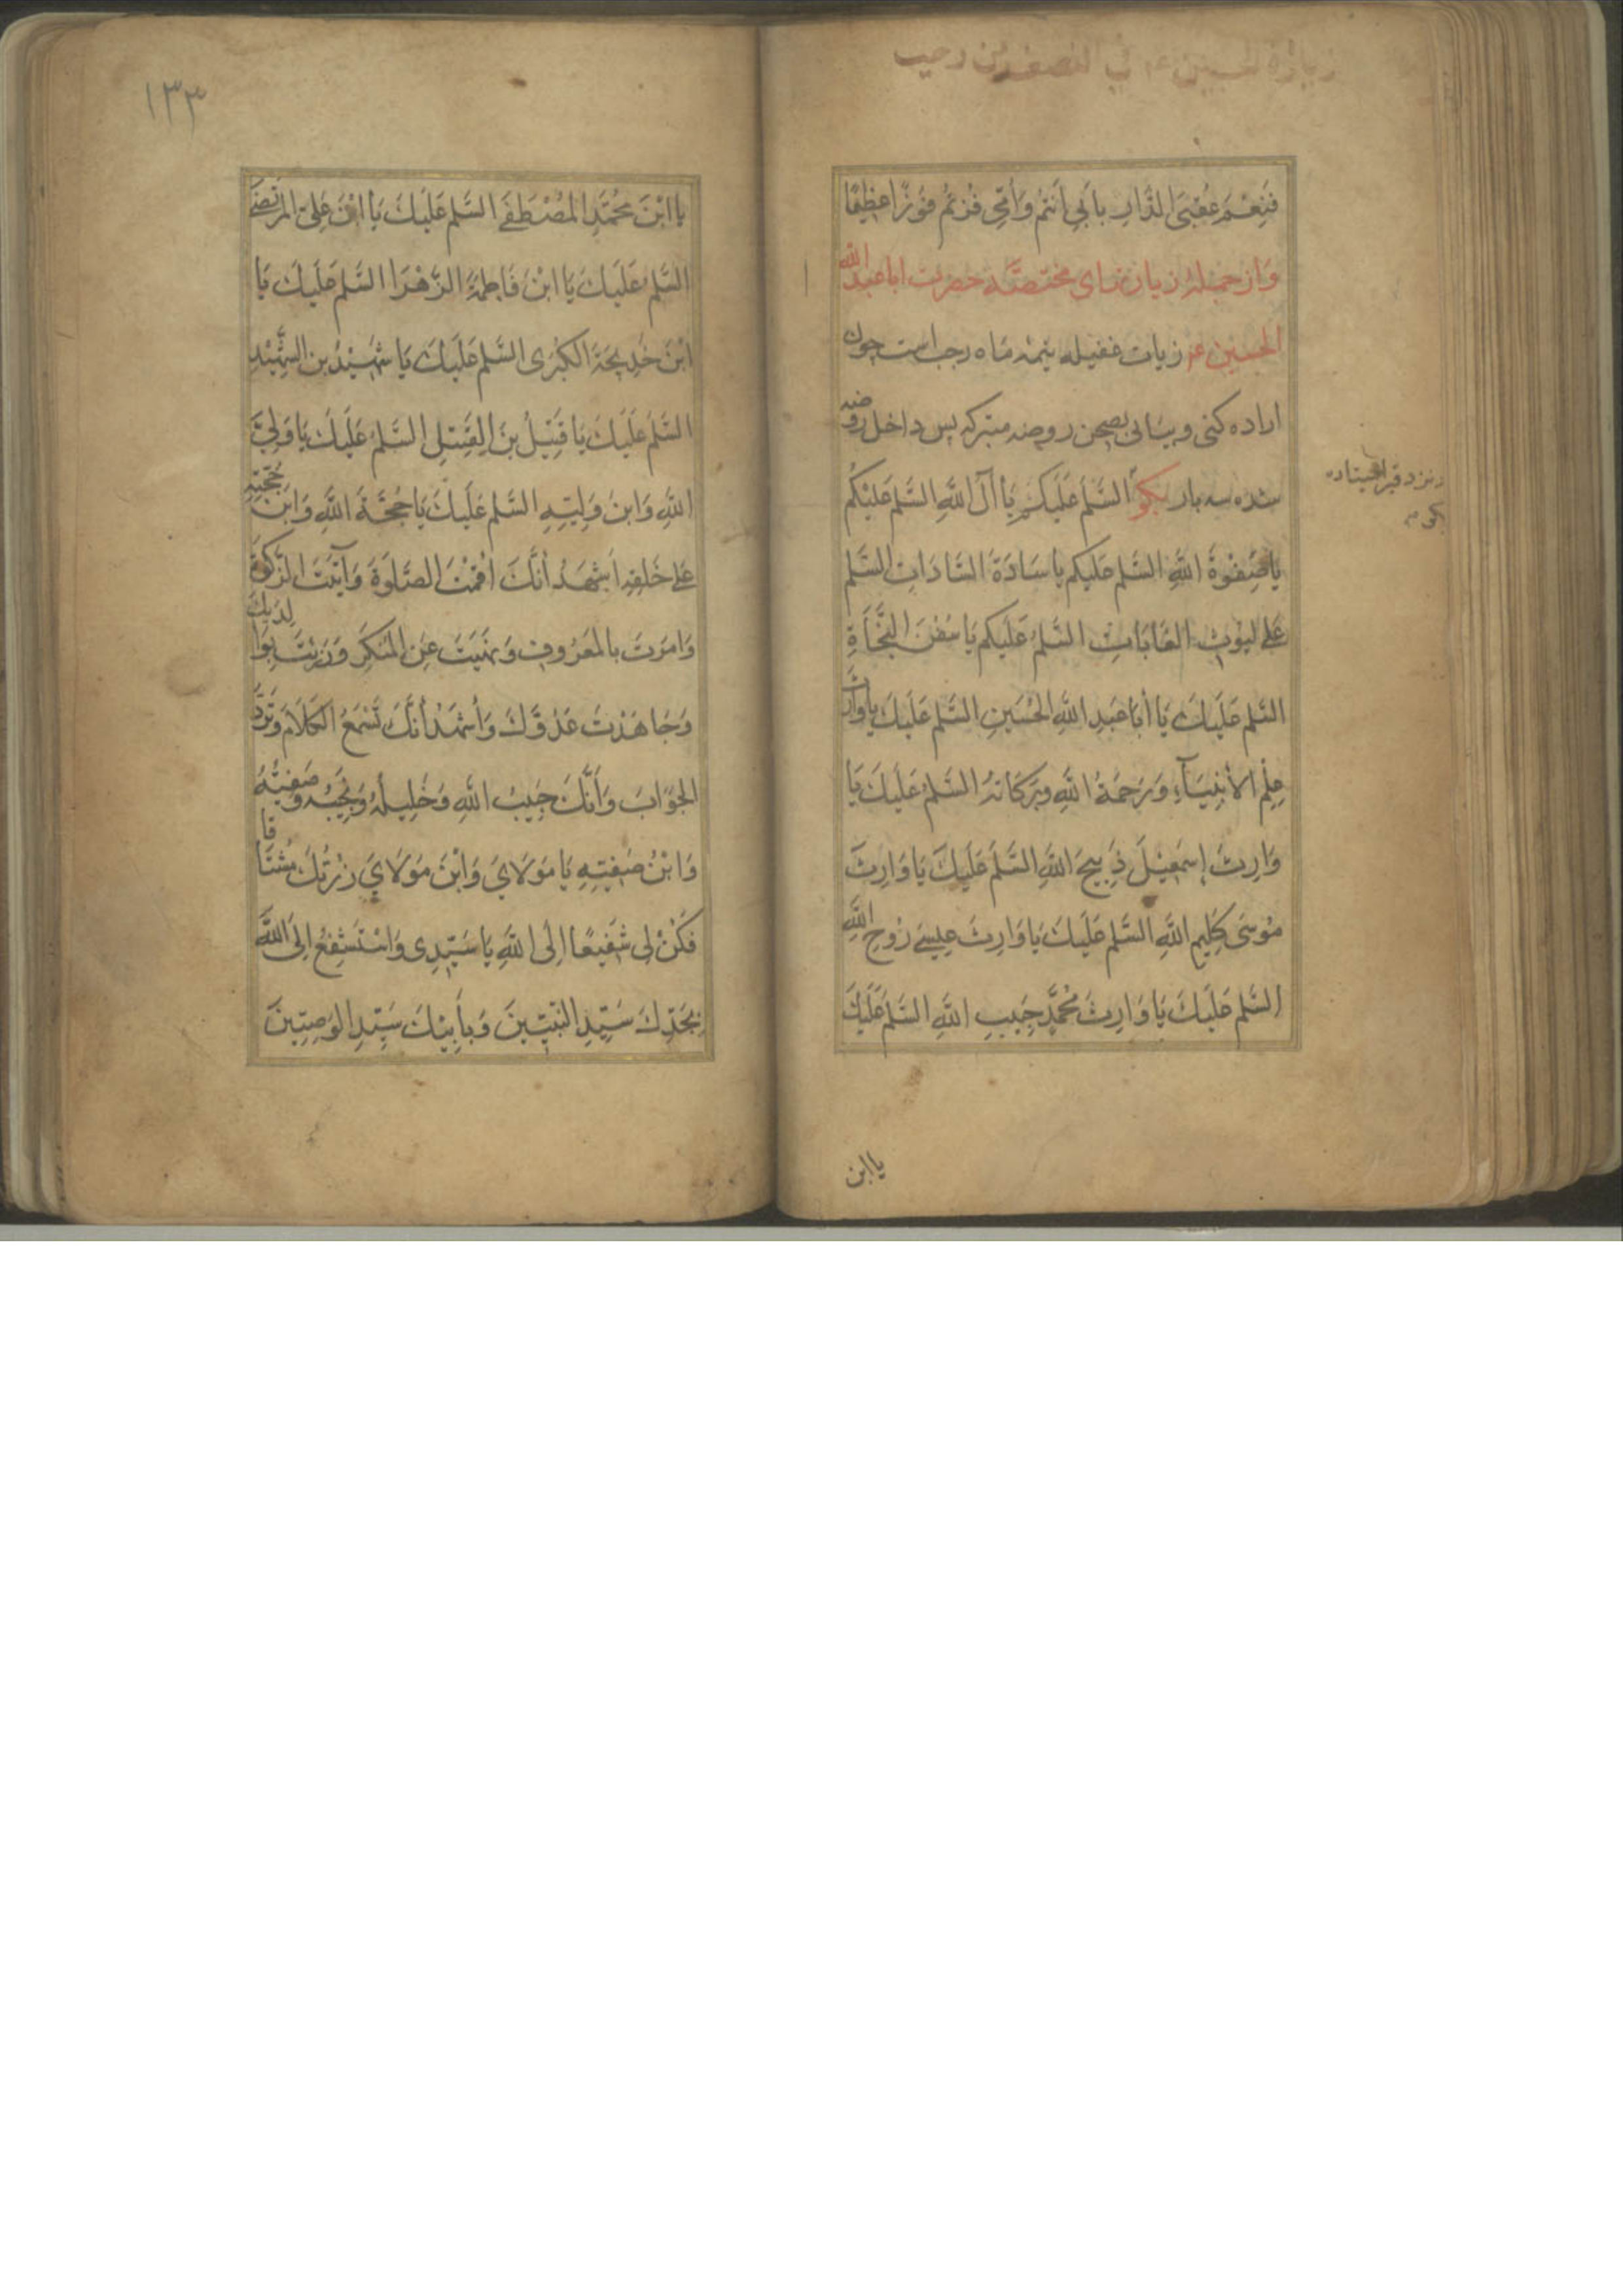 زيارة الحسين ع في النصف من رجب
فَنِعْمَ عُقْبَى الدَّارِ بِاَبِي اَنْتُمْ وَاُمِّي فُزْتُمْ فَوْزًا عَظِيمًا
وَاز جمله زيارتهاى مختصّه حضرت اباعبد الله
الحسين ع زيات غفيله نيمه ماه رجب است چون
اراده كنى وبيائى بصحن روضه متبركه پس داخل روضه
شده سه بار بكو السَّلَم عَلَيكُم يَا آلَ اللَّهِ السَّلَم عَلَيْكُم
يَا صَفْوَةَ اللَّهِ السَّلَم عَلَيكُم يَا سَادَةَ السَّادَاتِ السَّلَم
عَلَى ليُوثِ الغَابَاتِ السَّلَمُ عَلَيكُم يَا سُفُنَ النَّجَاةِ
السَّلَم عَلَيكَ يَا أبَا عَبدِ اللَّهِ الحُسَينِ السَّلَم عَلَيكَ يا وارث
عِلْمِ الأنبِيَآءِ وَرَحْمَةُ اللَّهِ وَبَرَكَاتهُ السَّلَمُ عَلَيكَ يَا
وَارِثَ إِسْمَعِيلَ ذَبِيحِ اللَّهِ السَّلَم عَلَيكَ يَا وَارِثَ
مُوسَى كَلِيمِ اللَّهِ السَّلَم عَلَيكَ يَا وَارِثَ عِيسَى رُوحِ اللَّهِ
السَّلَم عَلَيكَ يَا وَارِثَ مُحَمَّدٍ حَبِيبِ اللَّهِ السَّلَم عَلَيكَ
در نزد قبر ايستاده
بكو م
يا ابن
١٣٣
يا ابْنَ مُحَمَّدٍ المُصْطَفَى السَّلَم عَلَيكَ يَا ابْنَ عَلِيّ المُرْتَضَى
السَّلَمُ عَلَيكَ يَا ابْنَ فَاطِمَةَ الزَّهْرَا السَّلَم عَلَيكَ يَا
ابْنَ خَدِيجَةَ الكُبْرَى السَّلَم عَلَيكَ يَا شَهِيْدُ بن الشَّهِيْدِ
السَّلَمُ عَلَيكَ يَا قَتِيْلُ بنَ القَتِيلِ السَّلَمُ عَلَيكَ يَا وَلِيَّ
اللَّهِ وَابنَ وَلِيِّهِ السَّلَم عَلَيكَ يَا حُجَّةَ اللَّهِ وَابنَ حُجَّتِهِ
عَلى خَلقِهِ اَشْهَدُ أنَّكَ اَقَمْتَ الصَّلَوةَ وَآتَيْتَ الزَّكَوةَ
وَامَرْتَ بالمَعْرُوفِ وَنَهَيْتَ عَنِ المُنكَرِ وَرُزِئْتَ بِوَالِدَيكَ
وَجَاهَدْتَ عَدُوَّكَ وَأَشْهَدُ أنَّكَ تَسْمَعُ الكَلَامَ وَتَرُدُّ
الجَوَابَ وَأَنَّكَ حَبِيبُ اللَّهِ وَخَلِيلُهُ وَنَجِيبُهُ وَصَفِيُّهُ
وَابْنُ صَفِيِّهِ يَا مَولَايَ وَابْنَ مَولَايَ زُرْتُكَ مُشتَاقا
فَكُنْ لِى شَفِيعًا اِلَى اللَّهِ يَا سَيِّدِى وَاسْتَشفِعُ اِلَى اللَّهِ
بِجَدِّكَ سَيِّدِ النَّبِيِّينَ وَبِأَبِيْكَ سَيِّدِ الوَصِيِّينَ